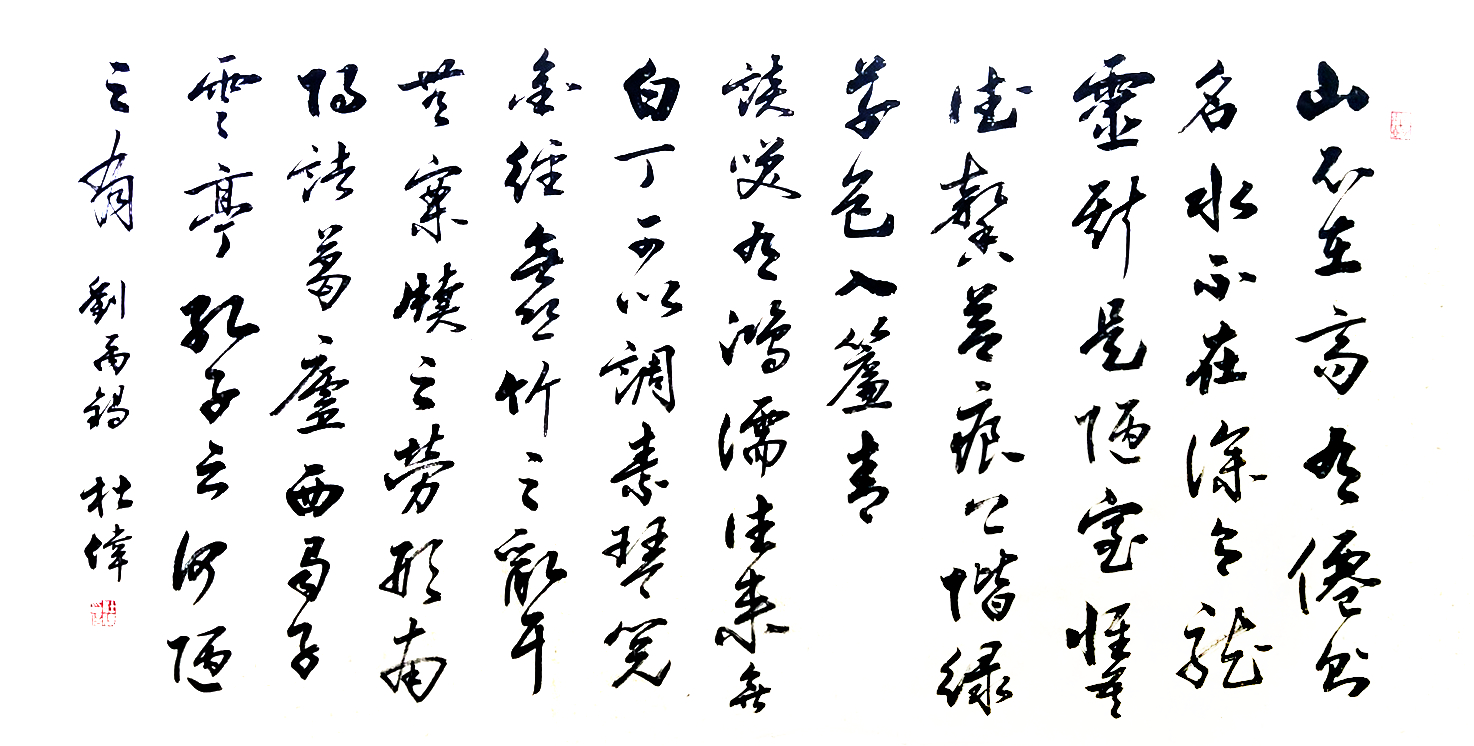 山不在高有僊則
名水不在深有龍
靈斯是陋室惟吾
德馨苔痕上階緑
草色入簾青
談笑有鴻儒往來無
白丁可以調素琴閱
金經無絲竹之亂耳
無案牘之勞形南
陽諸葛廬西蜀子
雲亭孔子云何陋
之有 劉禹錫 杜偉